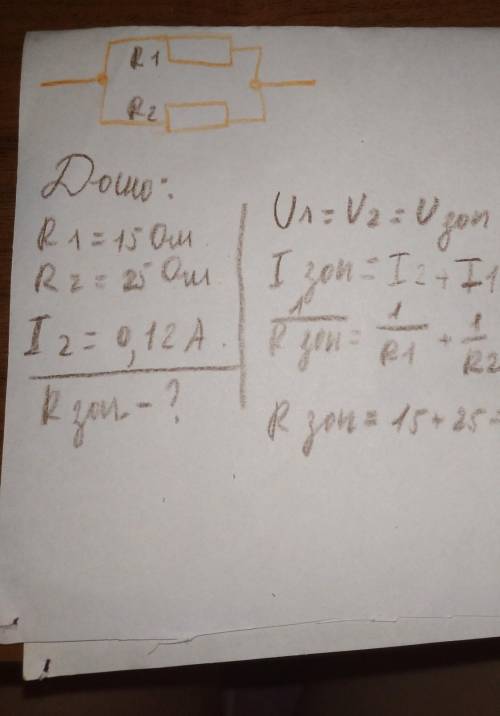 R1
R2
Дано:
R1 = 15 Ом
R2 = 25 Ом
I2 = 0,12 А.
R заг - ?
U1 = U2 = U заг
I заг = I2 + I1
1/R заг = 1/R1 + 1/R2
R заг = 15 + 25 =